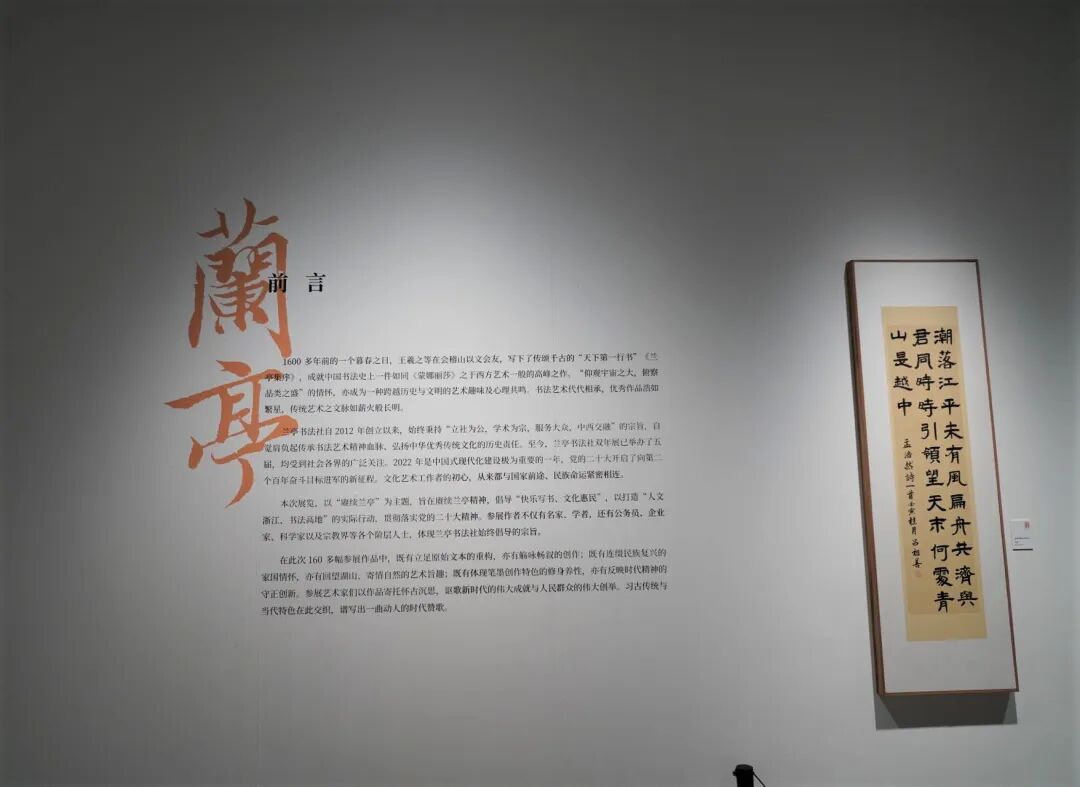 蘭亭
前言
1600 多年前的一个暮春之日，王羲之等在会稽山以文会友，写下了传颂千古的“天下第一行书”《兰
亭集序》，成就中国书法史上一件如同《蒙娜丽莎》之于西方艺术一般的高峰之作。“仰观宇宙之大，俯察
品类之盛”的情怀，亦成为一种跨越历史与文明的艺术趣味及心理共鸣。书法艺术代代相承，优秀作品浩如
繁星，传统艺术之文脉如薪火般长明。
兰亭书法社自 2012 年创立以来，始终秉持“立社为公，学术为宗，服务大众，中西交融”的宗旨，自
觉肩负起传承书法艺术精神血脉、弘扬中华优秀传统文化的历史责任。至今，兰亭书法社双年展已举办了五
届，均受到社会各界的广泛关注。2022 年是中国式现代化建设极为重要的一年，党的二十大开启了向第二
个百年奋斗目标进军的新征程。文化艺术工作者的初心，从来都与国家前途、民族命运紧密相连。
本次展览，以“赓续兰亭”为主题，旨在赓续兰亭精神，倡导“快乐写书、文化惠民”，以打造“人文
浙江，书法高地”的实际行动，贯彻落实党的二十大精神。参展作者不仅有名家、学者，还有公务员、企业
家、科学家以及宗教界等各个阶层人士，体现兰亭书法社始终倡导的宗旨。
在此次 160 多幅参展作品中，既有立足原始文本的重构，亦有觞咏畅叙的创作；既有连缀民族复兴的
家国情怀，亦有回望湖山、寄情自然的艺术旨趣；既有体现笔墨创作特色的修身养性，亦有反映时代精神的
守正创新。参展艺术家们以作品寄托怀古沉思，讴歌新时代的伟大成就与人民群众的伟大创举。习古传统与
当代特色在此交织，谱写出一曲动人的时代赞歌。
潮落江平未有風扁舟共濟與
君同時時引領望天末何處青
山是越中
孟浩然詩一首壬寅桂月呂祖善